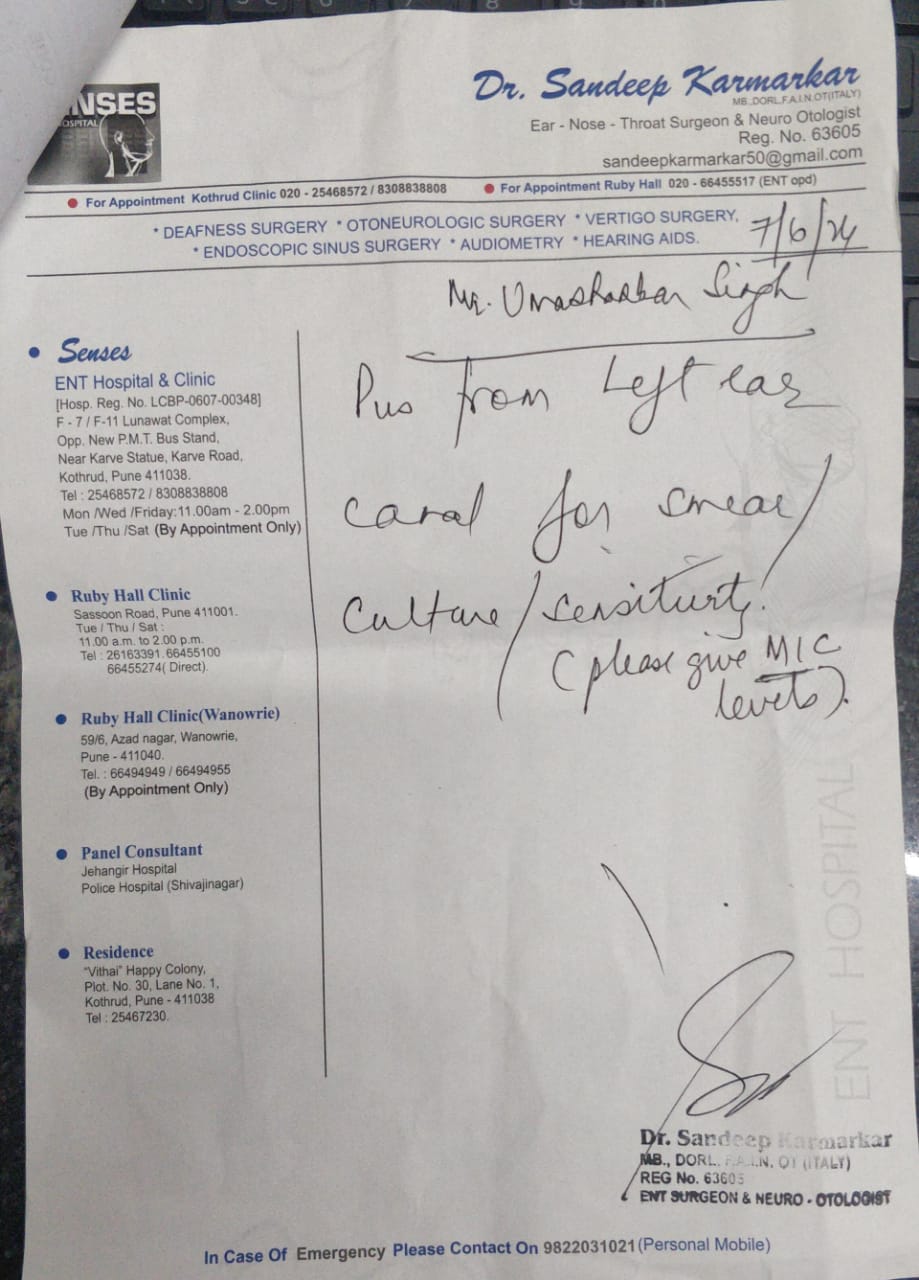 NSES
OSPITAL
Dr. Sandeep Karmarkar
MB.,DORL.F.A.I.N.OT(ITALY)
Ear - Nose - Throat Surgeon & Neuro Otologist
Reg. No. 63605
sandeepkarmarkar50@gmail.com
• For Appointment Kothrud Clinic 020 - 25468572 / 8308838808 • For Appointment Ruby Hall 020 - 66455517 (ENT opd)
* DEAFNESS SURGERY * OTONEUROLOGIC SURGERY * VERTIGO SURGERY,
* ENDOSCOPIC SINUS SURGERY * AUDIOMETRY * HEARING AIDS.
7/6/24
Mr. Umashankar Singh
Pus from Left ear
canal for smear/
culture/sensitivity.
(please give MIC
levels).
• Senses
ENT Hospital & Clinic
[Hosp. Reg. No. LCBP-0607-00348]
F - 7 / F-11 Lunawat Complex,
Opp. New P.M.T. Bus Stand,
Near Karve Statue, Karve Road,
Kothrud, Pune 411038.
Tel : 25468572 / 8308838808
Mon /Wed /Friday:11.00am - 2.00pm
Tue /Thu /Sat (By Appointment Only)
• Ruby Hall Clinic
Sassoon Road, Pune 411001.
Tue / Thu / Sat :
11.00 a.m. to 2.00 p.m.
Tel : 26163391.66455100
66455274( Direct).
• Ruby Hall Clinic(Wanowrie)
59/6, Azad nagar, Wanowrie,
Pune - 411040.
Tel. : 66494949 / 66494955
(By Appointment Only)
• Panel Consultant
Jehangir Hospital
Police Hospital (Shivajinagar)
• Residence
"Vithai" Happy Colony,
Plot. No. 30, Lane No. 1,
Kothrud, Pune - 411038
Tel : 25467230.
ENT HOSPITAL
Dr. Sandeep Karmarkar
MB., DORL. F.A.I.N. OT (ITALY)
REG No. 63605
ENT SURGEON & NEURO - OTOLOGIST
In Case Of Emergency Please Contact On 9822031021 (Personal Mobile)